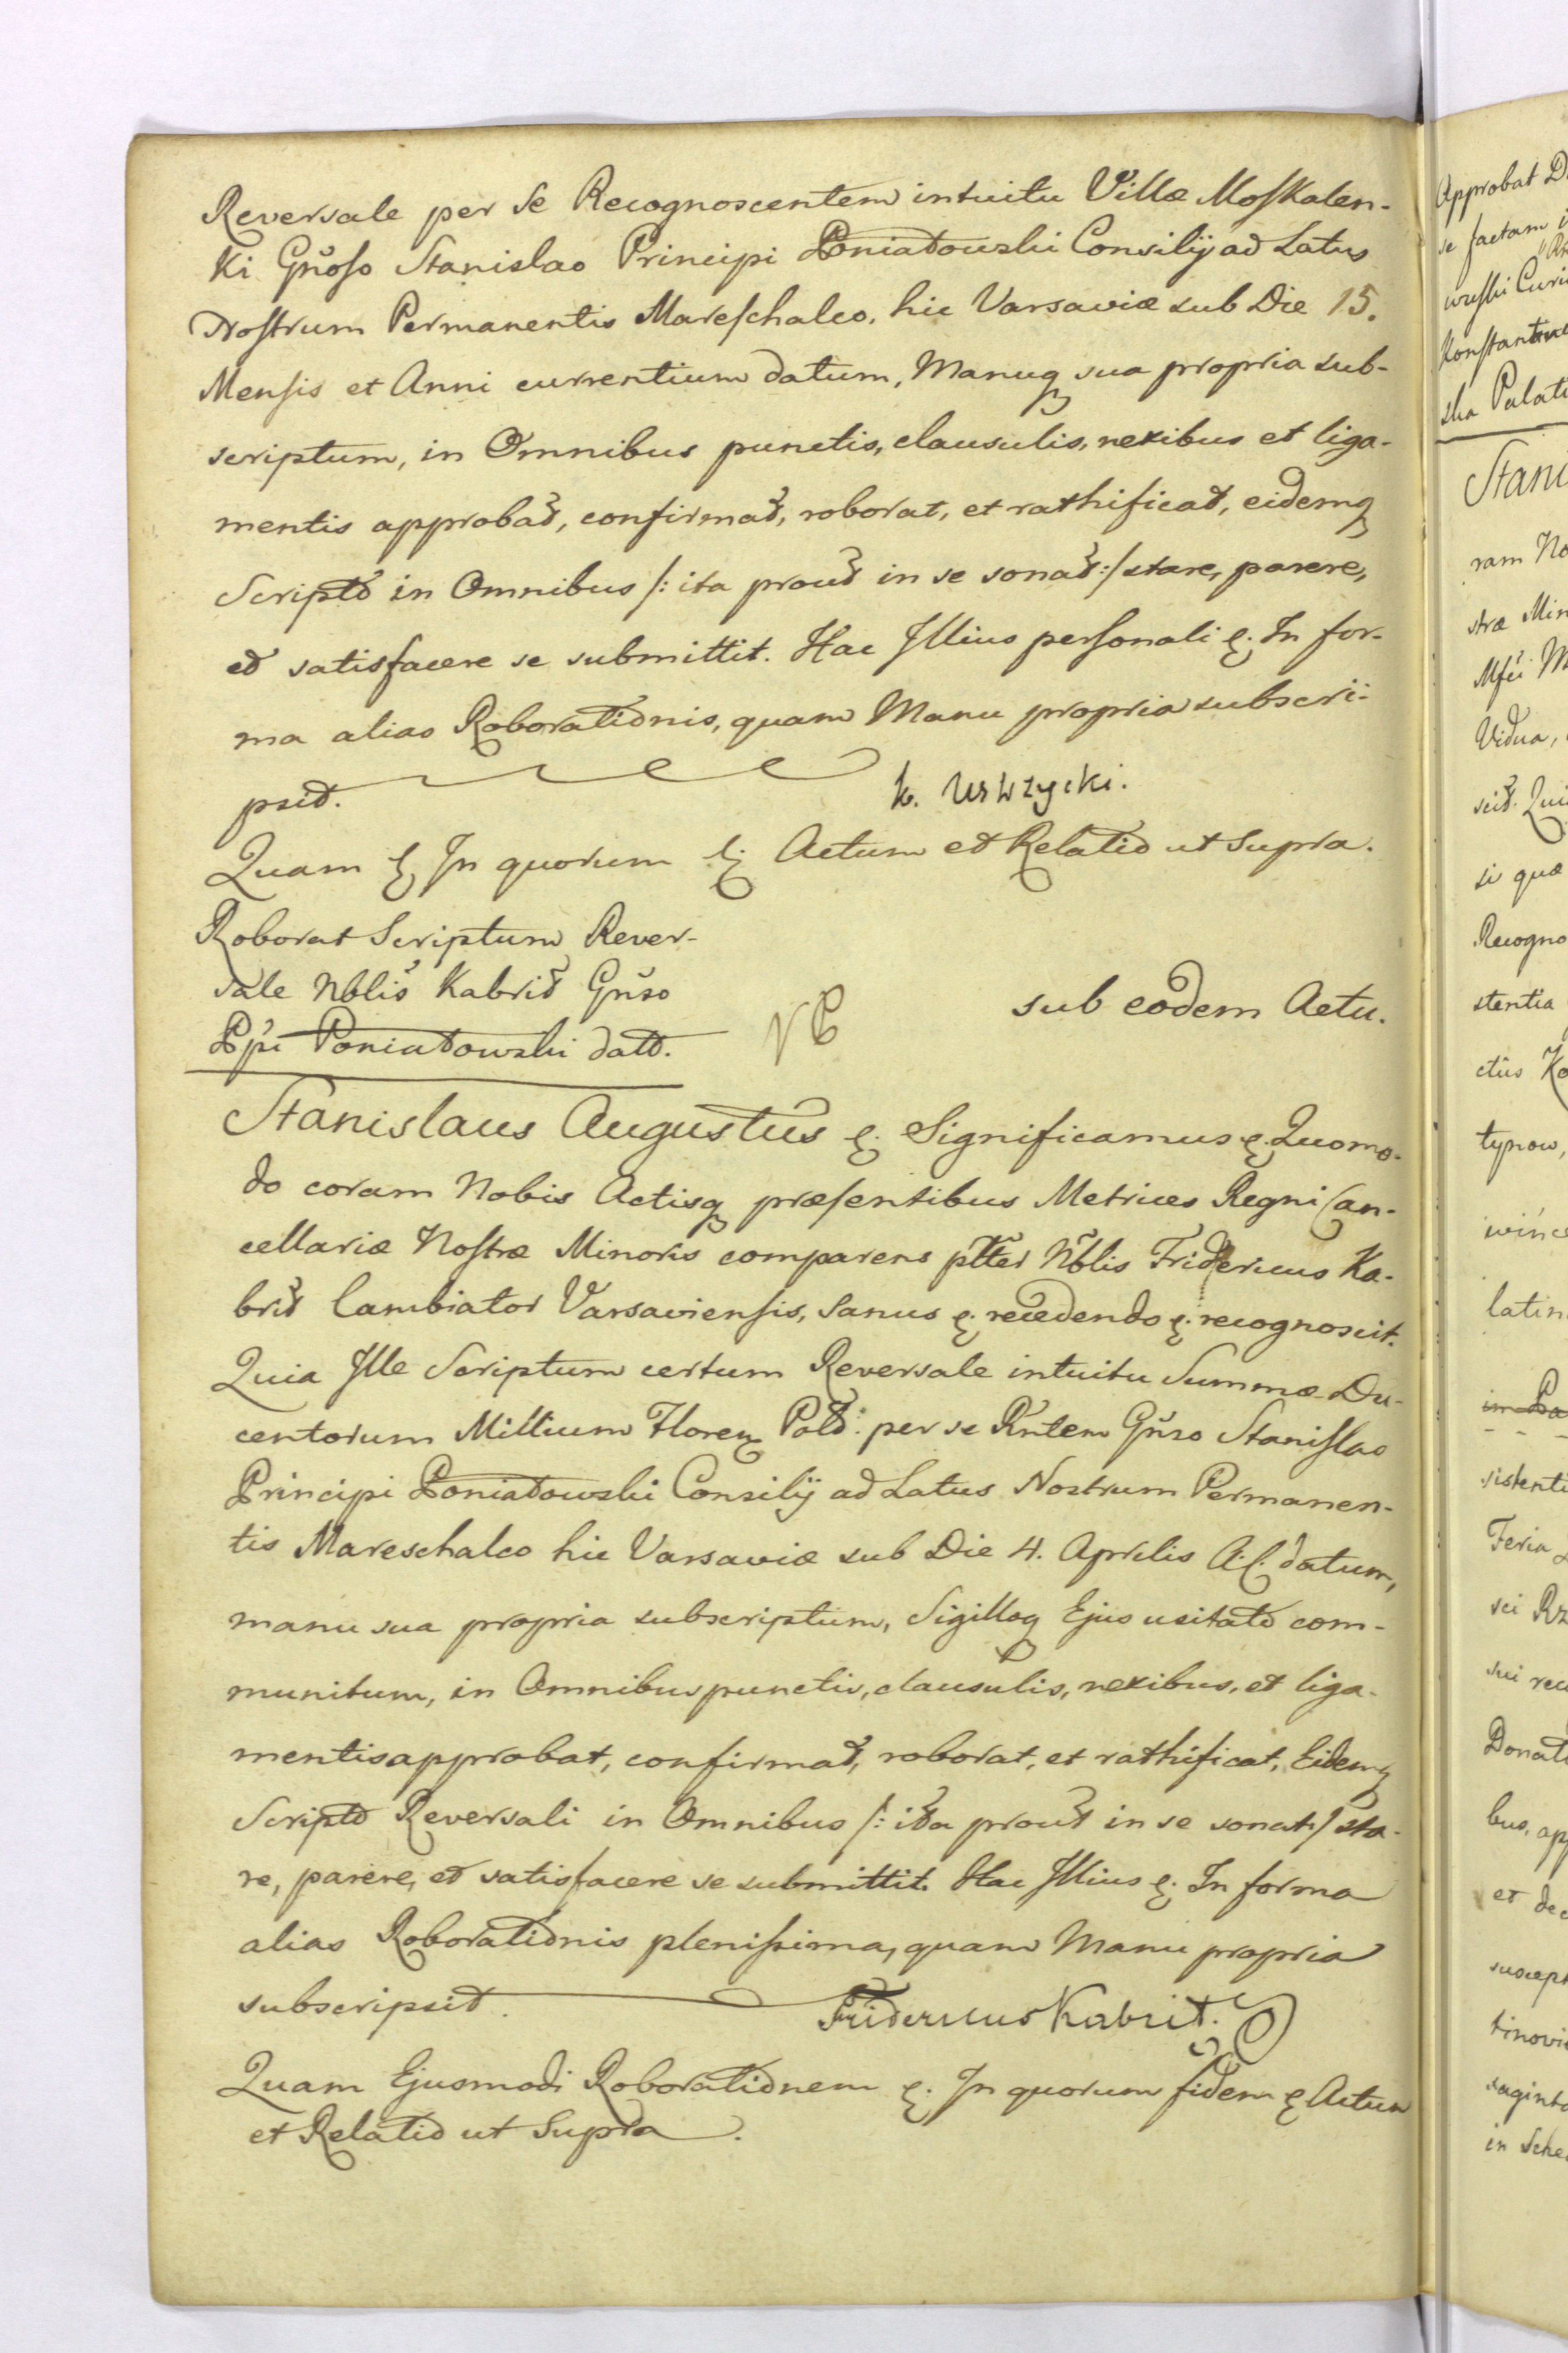 Reversale per se Recognoscentem intuitu Villæ Moskalen-
ki Gñoso Stanislao Principi Poniatowski Consilij ad Latus
Nostrum Permanentis Mareschalco, hic Varsaviæ sub Die 15.
Mensis et Anni currentium datum, Manuq sua propria sub-
scriptum, in Omnibus punctis, clausulis, nexibus et liga-
mentis approbat, confirmat, roborat, et rathificat, eidemq
Scripto in Omnibus /: ita prout in se sonat :/ stare, parere,
et satisfacere se submittit. Hac Illius personali &. In for-
ma alias Roborationis, quam Manu propria subscri-
psit.
Quam & In quorum & Actum et Relatio ut Supra.
Roborat Scriptum Rever-
sale Nblis Kabrit Gñso
Ppi Poniatowski datt.
sub eodem Actu.
Stanislaus Augustus &. Significamus &. Quomo-
do coram Nobis Actisq præsentibus Metrices Regni Can-
cellariæ Nostræ Minoris comparens pltter Nblis Fridericus Ka-
brit Cambiator Varsaviensis, Sanus &. recedendo &. recognoscit.
Quia Ille Scriptum certum Reversale intuitu Summæ Du-
centorum Millium Floren Pold: per se Rntem Gñso Stanislao
Principi Poniatowski Consilij ad Latus Nostrum Permanen-
tis Mareschalco hic Varsaviæ sub Die 4. Aprilis A. C. datum,
manu sua propria subscriptum, Sigilloq Ejus usitato com-
munitum, in Omnibus punctis, clausulis, nexibus, et liga-
mentis approbat, confirmat, roborat, et rathificat, Eidemq
Scripto Reversali in Omnibus /: ita prout in se sonat :/ sta-
re, parere, et satisfacere se submittit. Hac Illius &. In forma
alias Roborationis plenissima, quam Manu propria
subscripsit.
Fridericus Kabrit.
Quam Ejusmodi Roborationem &. In quorum fidem & Actum
et Relatio ut Supra.
Approbat
se factam
wuski
sha
Stani
ram
stræ
Vidua,
si quæ
Recogno
stentia
tynow,
latin
sistenti
Feria
Donat
bus, app
et dec
suscept
in Sche